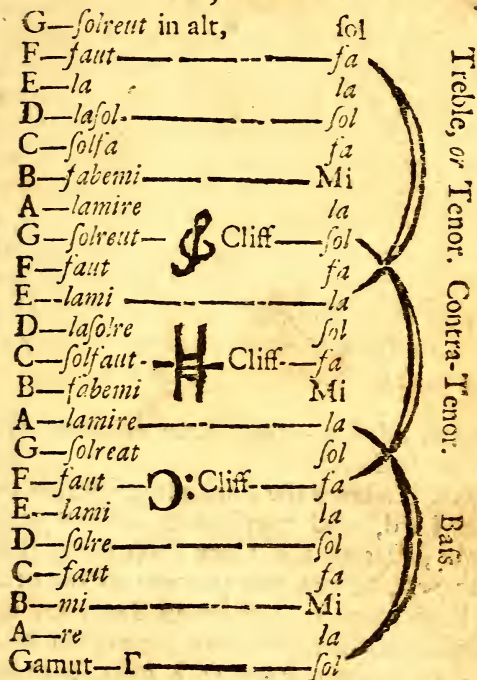 G—ſolreut in alt, ſol
F—faut fa
E—la la
D—laſol ſol
C—ſolfa fa
B—fabemi Mi
A—lamire la
G—ſolreut Cliff ſol
F—faut fa
E—lami la
D—laſolre ſol
C—ſolfaut Cliff fa
B—fabemi Mi
A—lamire la
G—ſolreat ſol
F—faut Cliff fa
E—lami la
D—ſolre ſol
C—faut fa
B—mi Mi
A—re la
Gamut—Γ ſol
Treble, or Tenor. Contra-Tenor. Baſs.